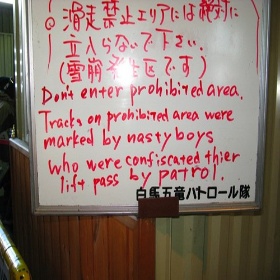 ◎ 滑走禁止エリアには絶対に
立入らないで下さい.
(雪崩発生区です)
Don't enter prohibited area.
Tracks on prohibited area were
marked by nasty boys
who were confiscated thier
lift pass by patrol.
白馬五竜パトロール隊